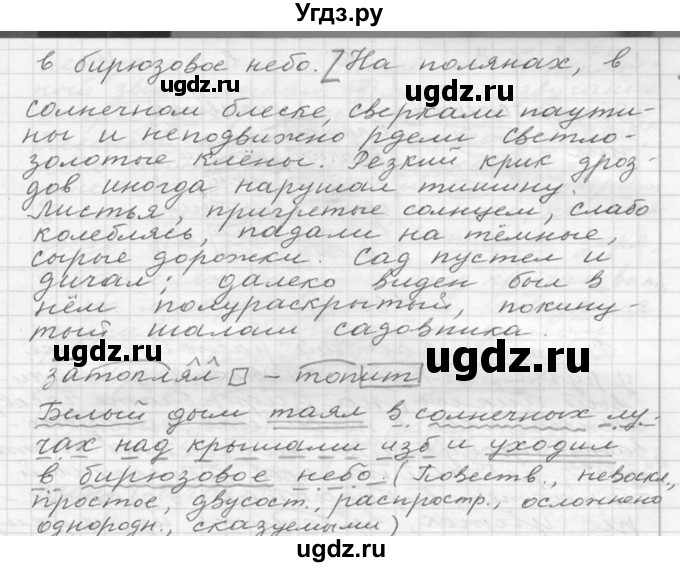 Угдз.ру
в бирюзовое небо. [На полянах, в
солнечном блеске, сверкали паути-
ны и неподвижно рдели светло-
золотые клёны. Резкий крик дроз-
дов иногда нарушал тишину.
Листья, пригретые солнцем, слабо
колеблясь, падали на тёмные,
сырые дорожки. Сад пустел и
дичал; далеко виден был в
нём полураскрытый, покину-
тый шалаш садовника.
затоплял – топит
Белый дым таял в солнечных лу-
чах над крышами изб и уходил
в бирюзовое небо. (Повеств., невоскл.,
простое, двусост., распростр., осложнено
однородн., сказуемыми)
ugdz.ru
ugdz.ru
ugdz.ru
ugdz.ru
ugdz.ru
ugdz.ru
ugdz.ru
ugdz.ru